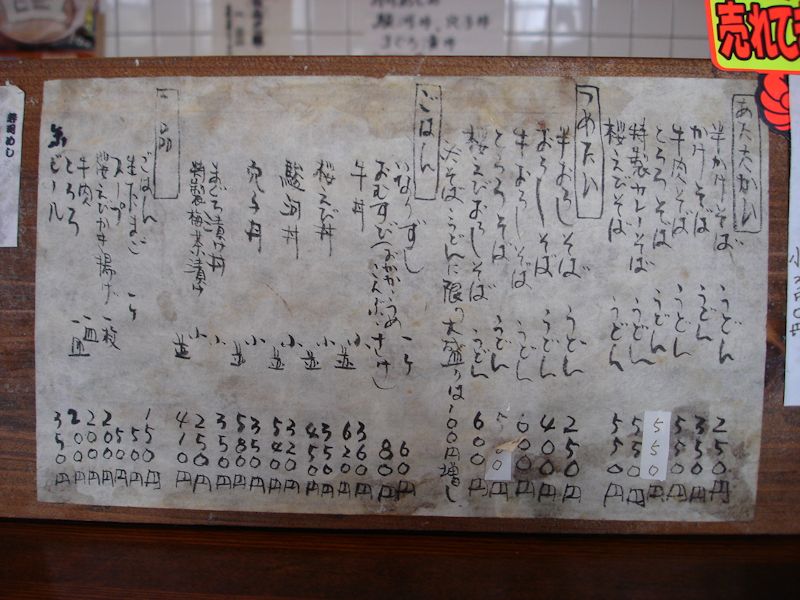 売れても
あたたかい
半かけそば うどん 250円
かけそば うどん 350円
牛肉そば うどん 550円
とろろそば うどん 550円
特製カレーそば うどん 550円
桜えびそば うどん 550円
つめたい
半おろしそば うどん 250円
おろしそば うどん 400円
牛おろしそば うどん 00円
とろろそば うどん 500円
桜えびおろしそば うどん 600円
そば、うどんに限り大盛りは100円増し
ごはん
いなりずし 一ヶ 60円
おむすび(おかか、うめ、こんぶ、さけ) 80円
牛丼 小 360円
並 620円
桜えび丼 小 350円
並 450円
駿河丼 小 320円
並 540円
穴子丼 小 350円
並 580円
まぐろ漬け丼 350円
特製梅茶漬け 小 250円
並 410円
一品
ごはん 150円
生たまご 一ヶ 50円
スープ 50円
桜えびかき揚げ 一枚 200円
牛肉 一皿 200円
とろろ 200円
ビール 350円
寿司めし